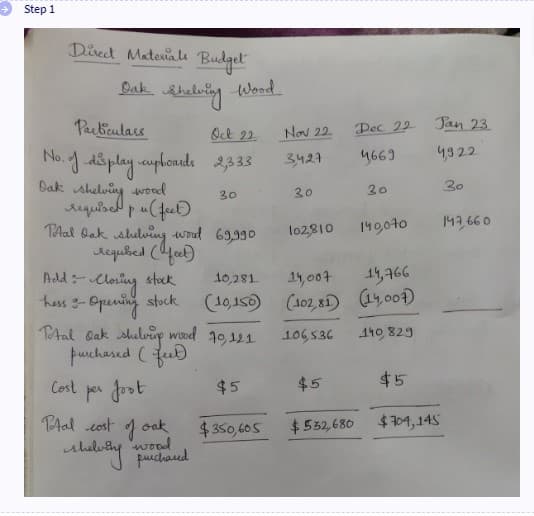 Step 1
Direct Materials Budget
Oak shelving Wood
Particulars Oct 22 Nov 22 Dec 22 Jan 23
No. of display cupboards 2,333 3,427 4669 4,922
Oak shelving wood 30 30 30 30
required p u (feet)
Total Oak shelving wood 69,990 102,810 140,070 147,660
required (feet)
Add :- Closing stock 10,281 14,007 14,766
Less :- Opening stock (10,150) (102,81) (14,007)
Total Oak shelving wood 70,121 106,536 140,829
purchased (feet)
Cost per foot $5 $5 $5
Total cost of oak $350,605 $532,680 $704,145
shelving wood
purchased